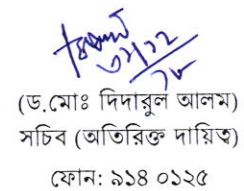 (ড.মোঃ দিদারুল আলম)
সচিব (অতিরিক্ত দায়িত্ব)
ফোন: ৯১৪ ০১২৫